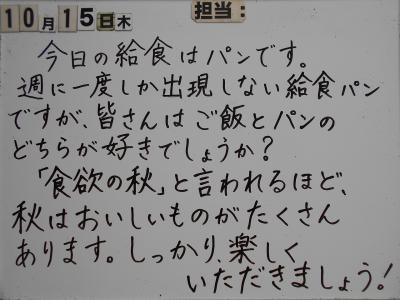 10月15日木 担当:
今日の給食はパンです。
週に一度しか出現しない給食パン
ですが、皆さんはご飯とパンの
どちらが好きでしょうか?
「食欲の秋」と言われるほど、
秋はおいしいものがたくさん
あります。しっかり、楽しく
いただきましょう!